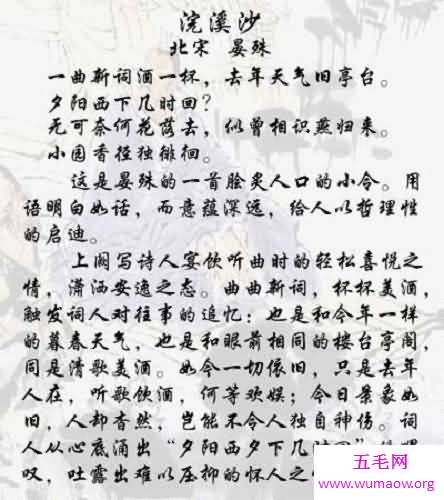 浣溪沙
北宋 晏殊
一曲新词酒一杯，去年天气旧亭台。
夕阳西下几时回？
无可奈何花落去，似曾相识燕归来。
小园香径独徘徊。
这是晏殊的一首脍炙人口的小令。用
语明白如话，而意蕴深远，给人以哲理性
的启迪。
上阕写诗人宴饮听曲时的轻松喜悦之
情，潇洒安逸之态。曲曲新词，杯杯美酒，
触发词人对往事的追忆：也是和今年一样
的暮春天气，也是和眼前相同的楼台亭阁，
同是清歌美酒。如今一切依旧，只是去年
人在，听歌饮酒，何等欢娱；今日景象如
旧，人却杳然，岂能不令人独自神伤。词
人从心底涌出“夕阳西夕下几时回”
叹，吐露出难以压抑的怀人之
五毛网
www.wumaow.org